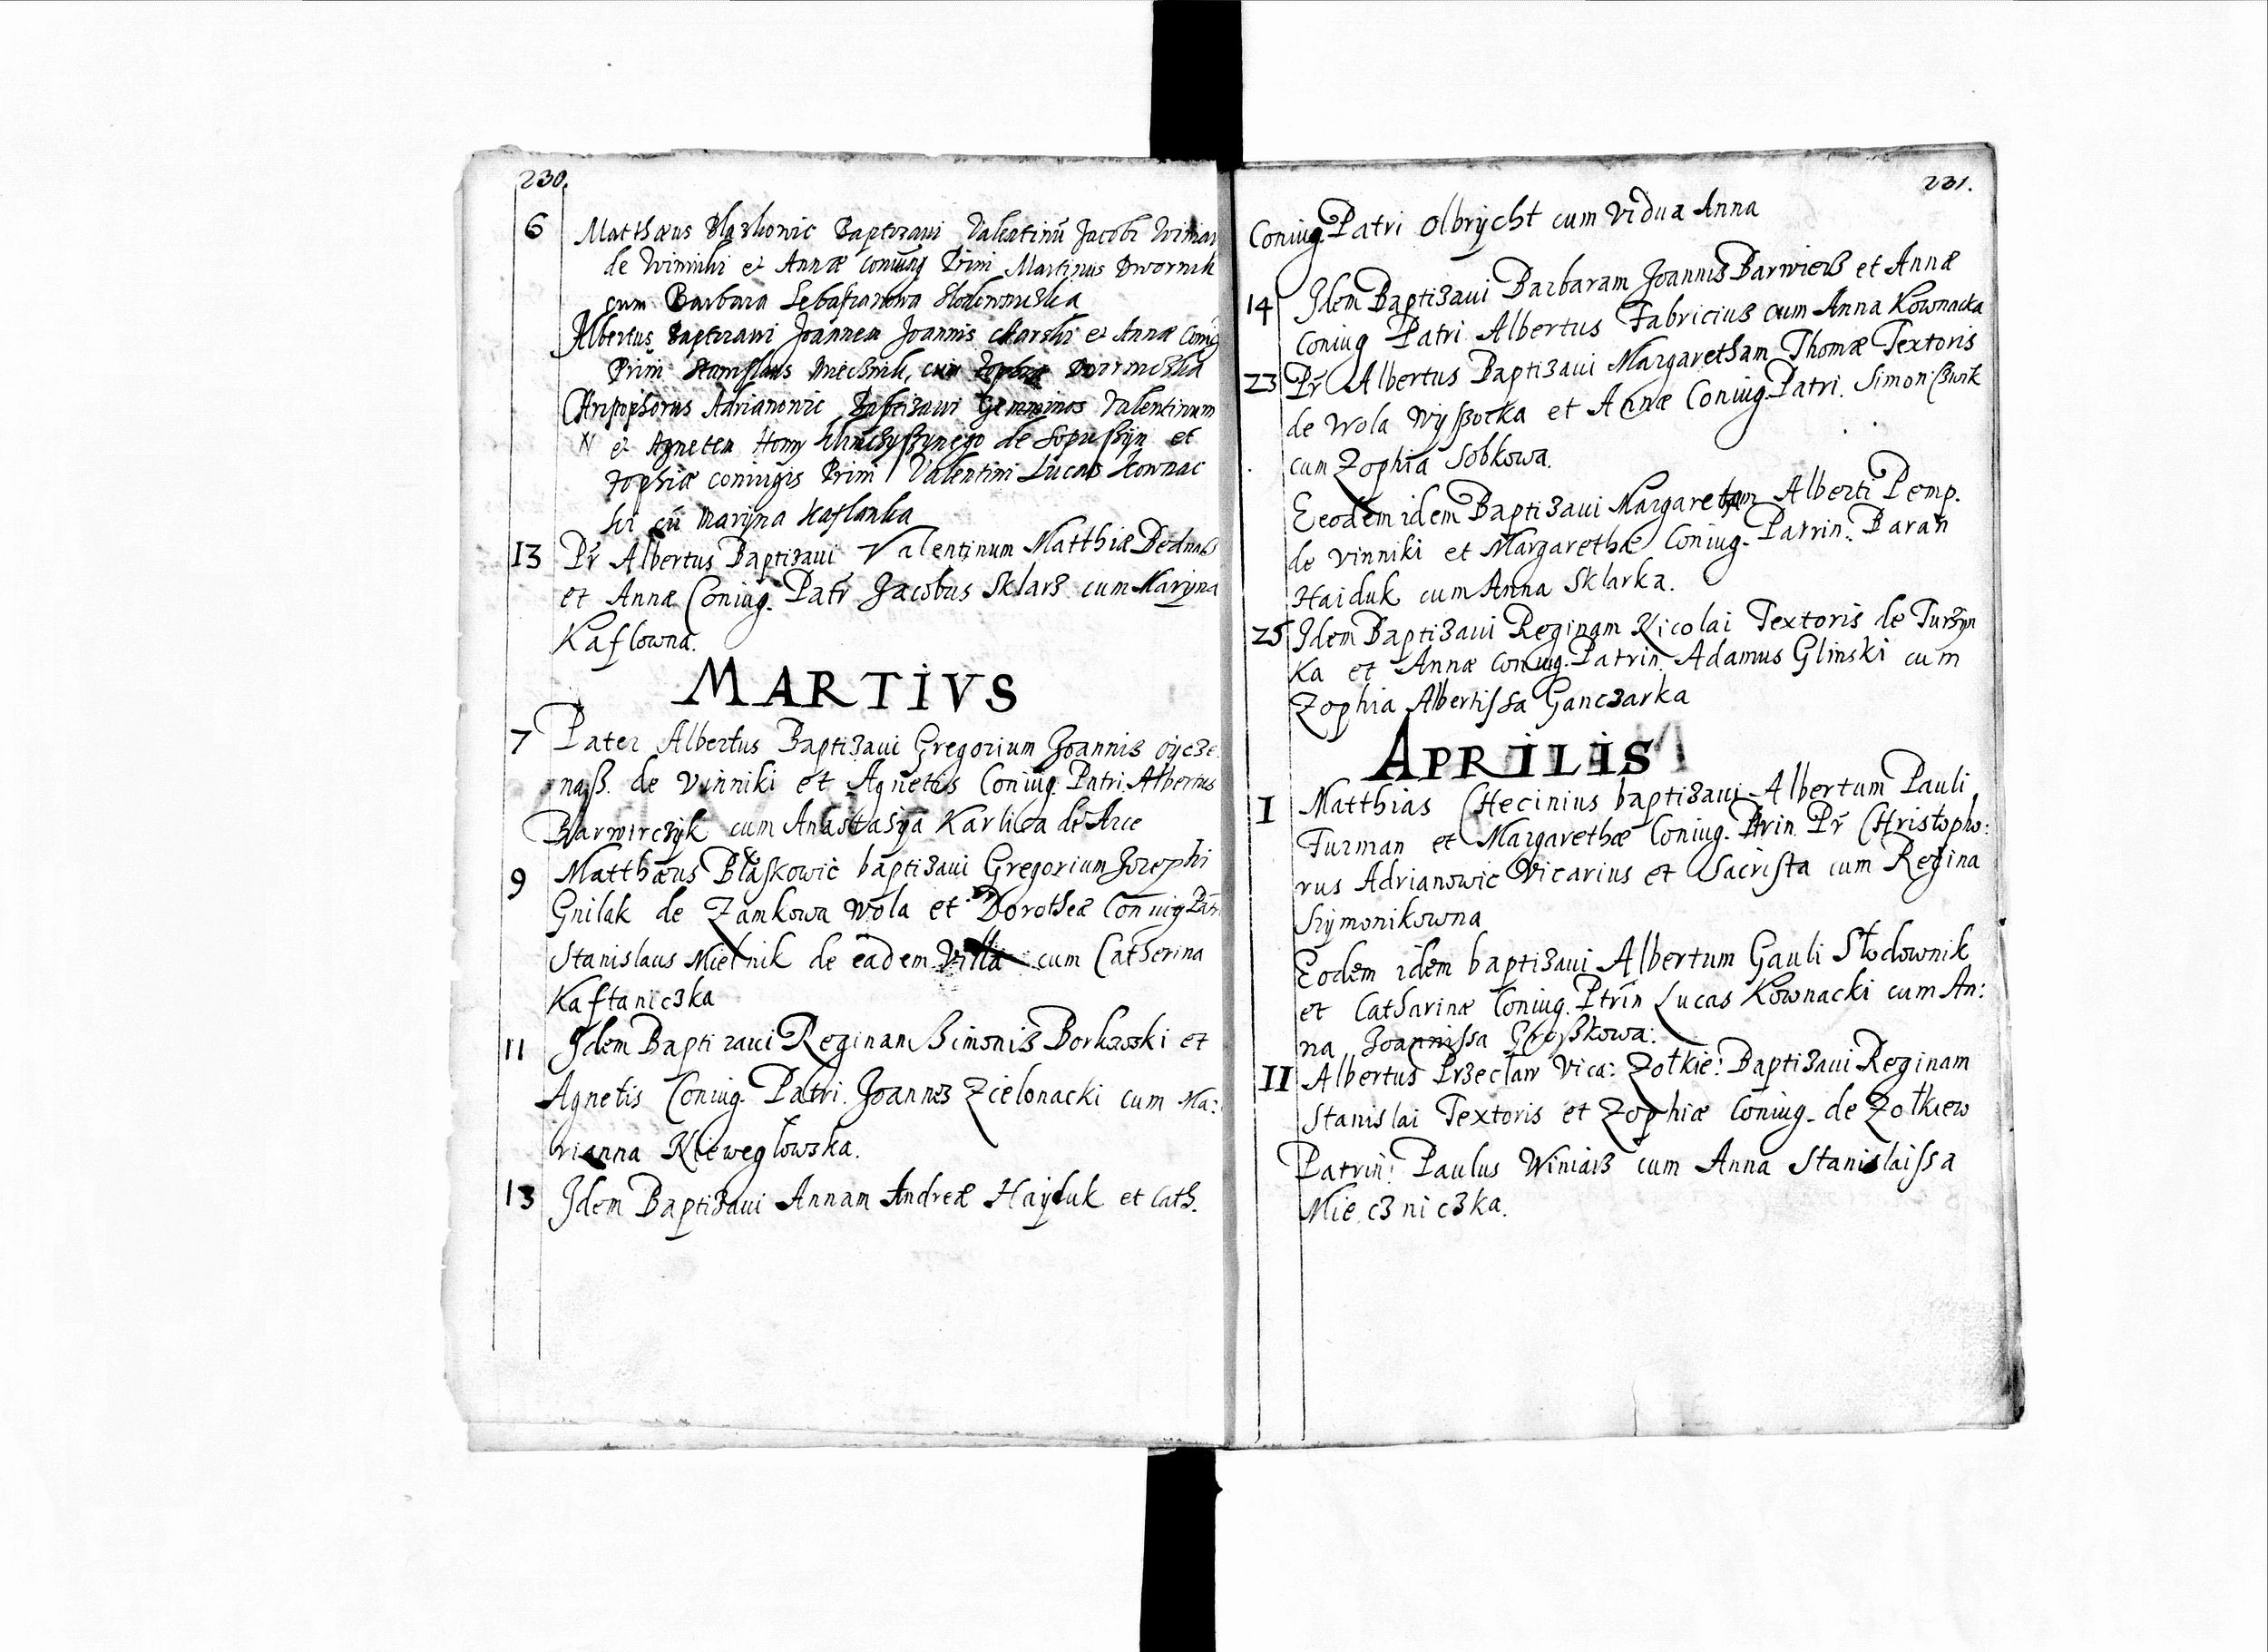 230.
6 Matthæus Blaskowic Baptizavi Valentinũ Jacobi Winiar
de Winniki et Annæ coniung Prini Martinus Dwornik
cum Barbara Sebastianowa Slodownicska
Albertus Baptizavi Joannem Joannis et Annæ Coniug
Prini Stanislaus Miecznik, cum Zophia
Christophorus Adrianowic Baptizavi Geminos Valentinum
N et Agnetem Homy de Sopuszyn et
Zophiæ coniugis Prini Valentini Lucas Kownac
ki cũ Maryna Kaflanka
13 Pr Albertus Baptizaui Valentinum Matthiæ
et Annæ Coniug. Patr Jacobus Sklarz cum Maryna
Kaflowna.
MARTIVS
7 Pater Albertus Baptizaui Gregorium Joannis oycze
nasz. de Vinniki et Agnetis Coniug. Patri. Albertus
Barwirczyk cum Anastasya Karlica de Arce
9 Matthæus Błaskowic baptizaui Gregorium Jozephi
Gnilak de Zamkowa Wola et Dorotheæ Coniug Patri
Stanislaus Mielnik de eadem Villa cum Catherina
Kaftaniczka
11 Idem Baptizaui Reginam Simonis Borkowski et
Agnetis Coniug. Patri. Joannes Zielonacki cum Ma:
rianna Nieweglowska.
13 Idem Baptizaui Annam Andreæ Hayduk et Cath.
231.
Coniug. Patri Olbrycht cum Vidua Anna
14 Idem Baptizaui Barbaram Joannis Barwierz et Annæ
Coniug Patri Albertus Fabricius cum Anna Kownacka
23 Pr Albertus Baptizaui Margaretham Thomæ Textoris
de Wola Wyszocka et Annæ Coniug. Patri. Simon
cum Zophia Sobkowa.
Eeodem idem Baptizaui Margaretam Alberti Pemp.
de Vinniki et Margarethæ Coniug. Patrin. Baran
Haiduk cum Anna Sklarka.
25 Idem Baptizaui Reginam Nicolai Textoris de Turzyn
Ka et Annæ coniug. Patrin. Adamus Glinski cum
Zophia Albertissa Ganczarka
APRILIS
I Matthias CHecinius baptizaui Albertum Pauli
Furman et Margarethæ Coniug. Ptrin. Pr CHristopho:
rus Adrianowic Vicarius et Sacrista cum Regina
Szymonikowna
Eodem idem baptizaui Albertum Gauli Słodownik
et Catharinæ Coniug. Ptrin Lucas Kownacki cum An:
na Joannissa Groszkowa:
II Albertus Przecław Vica: Zołkie: Baptizaui Reginam
Stanislai Textoris et Zophiæ Coniug. de Zołkiew
Patrin: Paulus Winiarz cum Anna Stanislaissa
Mieczniczka.